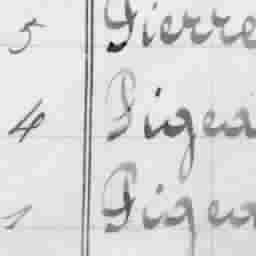 5 Pierre
4 Pigea
1 Pigea